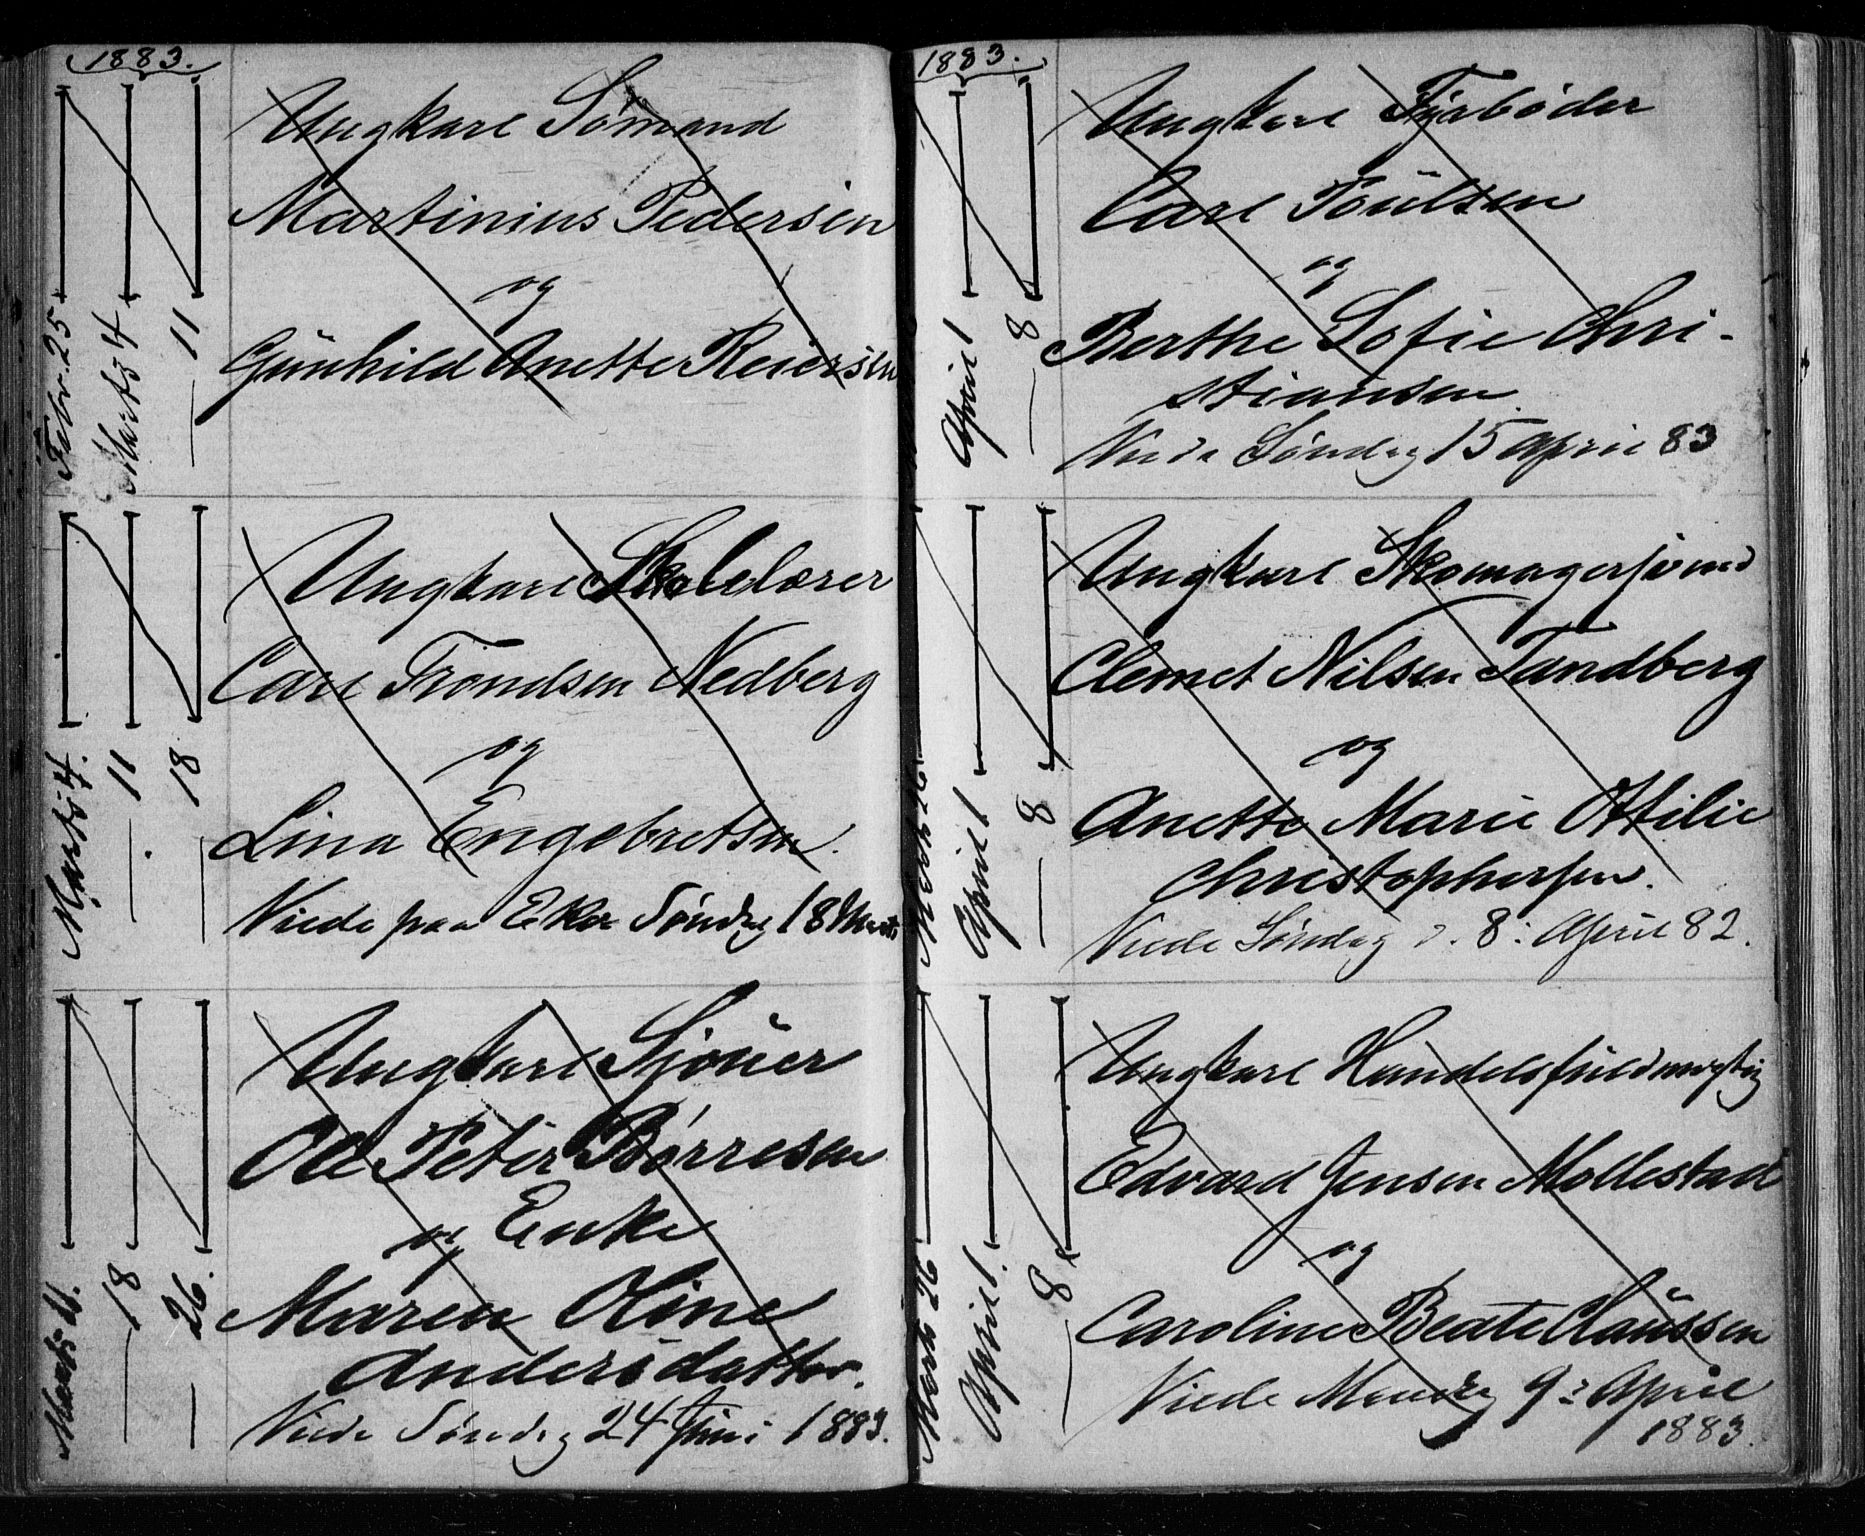 1883.
Febr. 25
Marts 4
— 11
Ungkarl Sømand
Martinius Pedersen
og
Günhild Anette Reiersen
Marts 4.
— 11
— 18
Ungkarl Skolelærer
Carl Trondsen Nedberg
og
Lina Engebretsen.
Viede paa Eker Søndag 18 Marts
Marts 11.
— 18
— 26.
Ungkarl Sjöuer
Ole Peter Børresen
og Enke
Maren Oline
Andersdatter.
Viede Søndag 24 Juni 1883.
1883.
April 1
— 8
Ungkarl Fyrbøder
Carl Poülsen
og
Berthe Sofie Chri-
stiansen.
Viede Søndag 15 April 83
Marts 26
April 1
— 8
Ungkarl Skomagersvend
Clemet Nilsen Tandberg
og
Anette Marie Ottilie
Christophersen.
Viede Søndag d. 8: April 82.
Marts 26
April 1.
— 8
Ungkarl Handelsfuldmægtig
Edvard Jensen Mollestad
og
Caroline Beate Claüssen
Viede Mandag 9: April
1883.